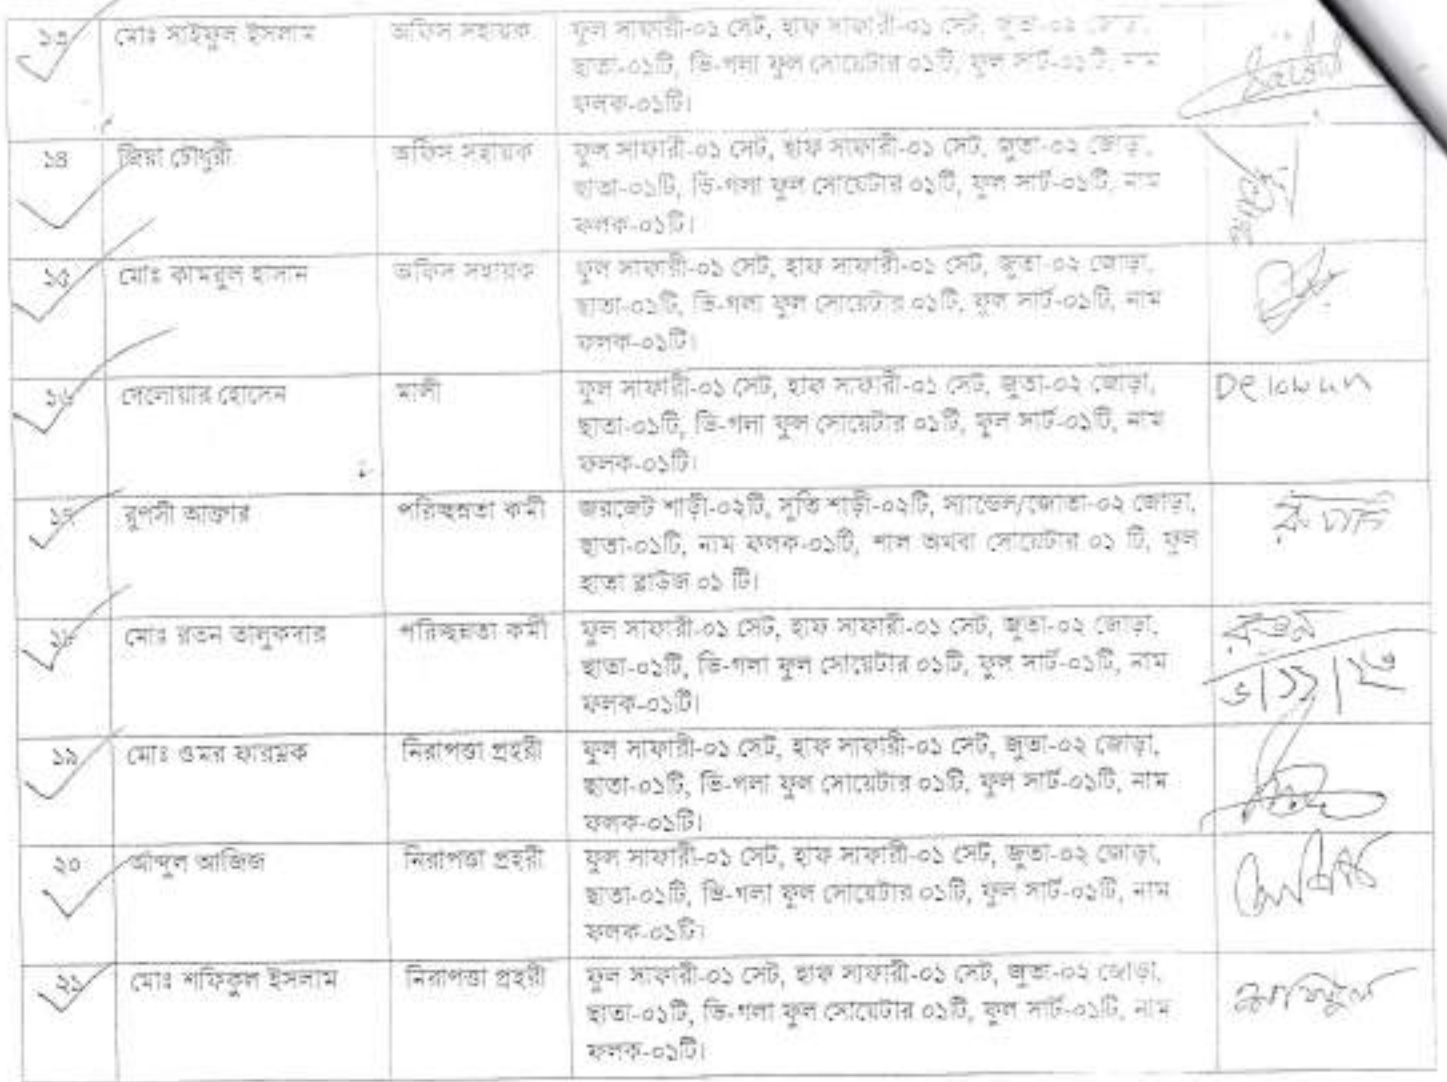 ১৩ মোঃ সাইফুল ইসলাম অফিস সহায়ক ফুল সাফারী-০১ সেট, হাফ সাফারী-০১ সেট, জুতা-০২ জোড়া,
ছাতা-০১টি, ভি-গলা ফুল সোয়েটার ০১টি, ফুল সার্ট-০১টি, নাম
ফলক-০১টি।
১৪ জিয়া চৌধুরী অফিস সহায়ক ফুল সাফারী-০১ সেট, হাফ সাফারী-০১ সেট, জুতা-০২ জোড়া,
ছাতা-০১টি, ভি-গলা ফুল সোয়েটার ০১টি, ফুল সার্ট-০১টি, নাম
ফলক-০১টি।
১৫ মোঃ কামরুল হাসান অফিস সহায়ক ফুল সাফারী-০১ সেট, হাফ সাফারী-০১ সেট, জুতা-০২ জোড়া,
ছাতা-০১টি, ভি-গলা ফুল সোয়েটার ০১টি, ফুল সার্ট-০১টি, নাম
ফলক-০১টি।
১৬ দেলোয়ার হোসেন মালী ফুল সাফারী-০১ সেট, হাফ সাফারী-০১ সেট, জুতা-০২ জোড়া,
ছাতা-০১টি, ভি-গলা ফুল সোয়েটার ০১টি, ফুল সার্ট-০১টি, নাম
ফলক-০১টি।
১৭ রুপসী আক্তার পরিচ্ছন্নতা কর্মী জরজেট শাড়ী-০২টি, সুতি শাড়ী-০২টি, স্যান্ডেল/জোতা-০২ জোড়া,
ছাতা-০১টি, নাম ফলক-০১টি, শাল অথবা সোয়েটার ০১ টি, ফুল
হাতা ব্লাউজ ০১ টি।
১৮ মোঃ রতন তালুকদার পরিচ্ছন্নতা কর্মী ফুল সাফারী-০১ সেট, হাফ সাফারী-০১ সেট, জুতা-০২ জোড়া, রতন
ছাতা-০১টি, ভি-গলা ফুল সোয়েটার ০১টি, ফুল সার্ট-০১টি, নাম
ফলক-০১টি।
১৯ মোঃ ওমর ফারম্নক নিরাপত্তা প্রহরী ফুল সাফারী-০১ সেট, হাফ সাফারী-০১ সেট, জুতা-০২ জোড়া,
ছাতা-০১টি, ভি-গলা ফুল সোয়েটার ০১টি, ফুল সার্ট-০১টি, নাম
ফলক-০১টি।
২০ আব্দুল আজিজ নিরাপত্তা প্রহরী ফুল সাফারী-০১ সেট, হাফ সাফারী-০১ সেট, জুতা-০২ জোড়া,
ছাতা-০১টি, ভি-গলা ফুল সোয়েটার ০১টি, ফুল সার্ট-০১টি, নাম
ফলক-০১টি।
২১ মোঃ শফিকুল ইসলাম নিরাপত্তা প্রহরী ফুল সাফারী-০১ সেট, হাফ সাফারী-০১ সেট, জুতা-০২ জোড়া,
ছাতা-০১টি, ভি-গলা ফুল সোয়েটার ০১টি, ফুল সার্ট-০১টি, নাম
ফলক-০১টি।